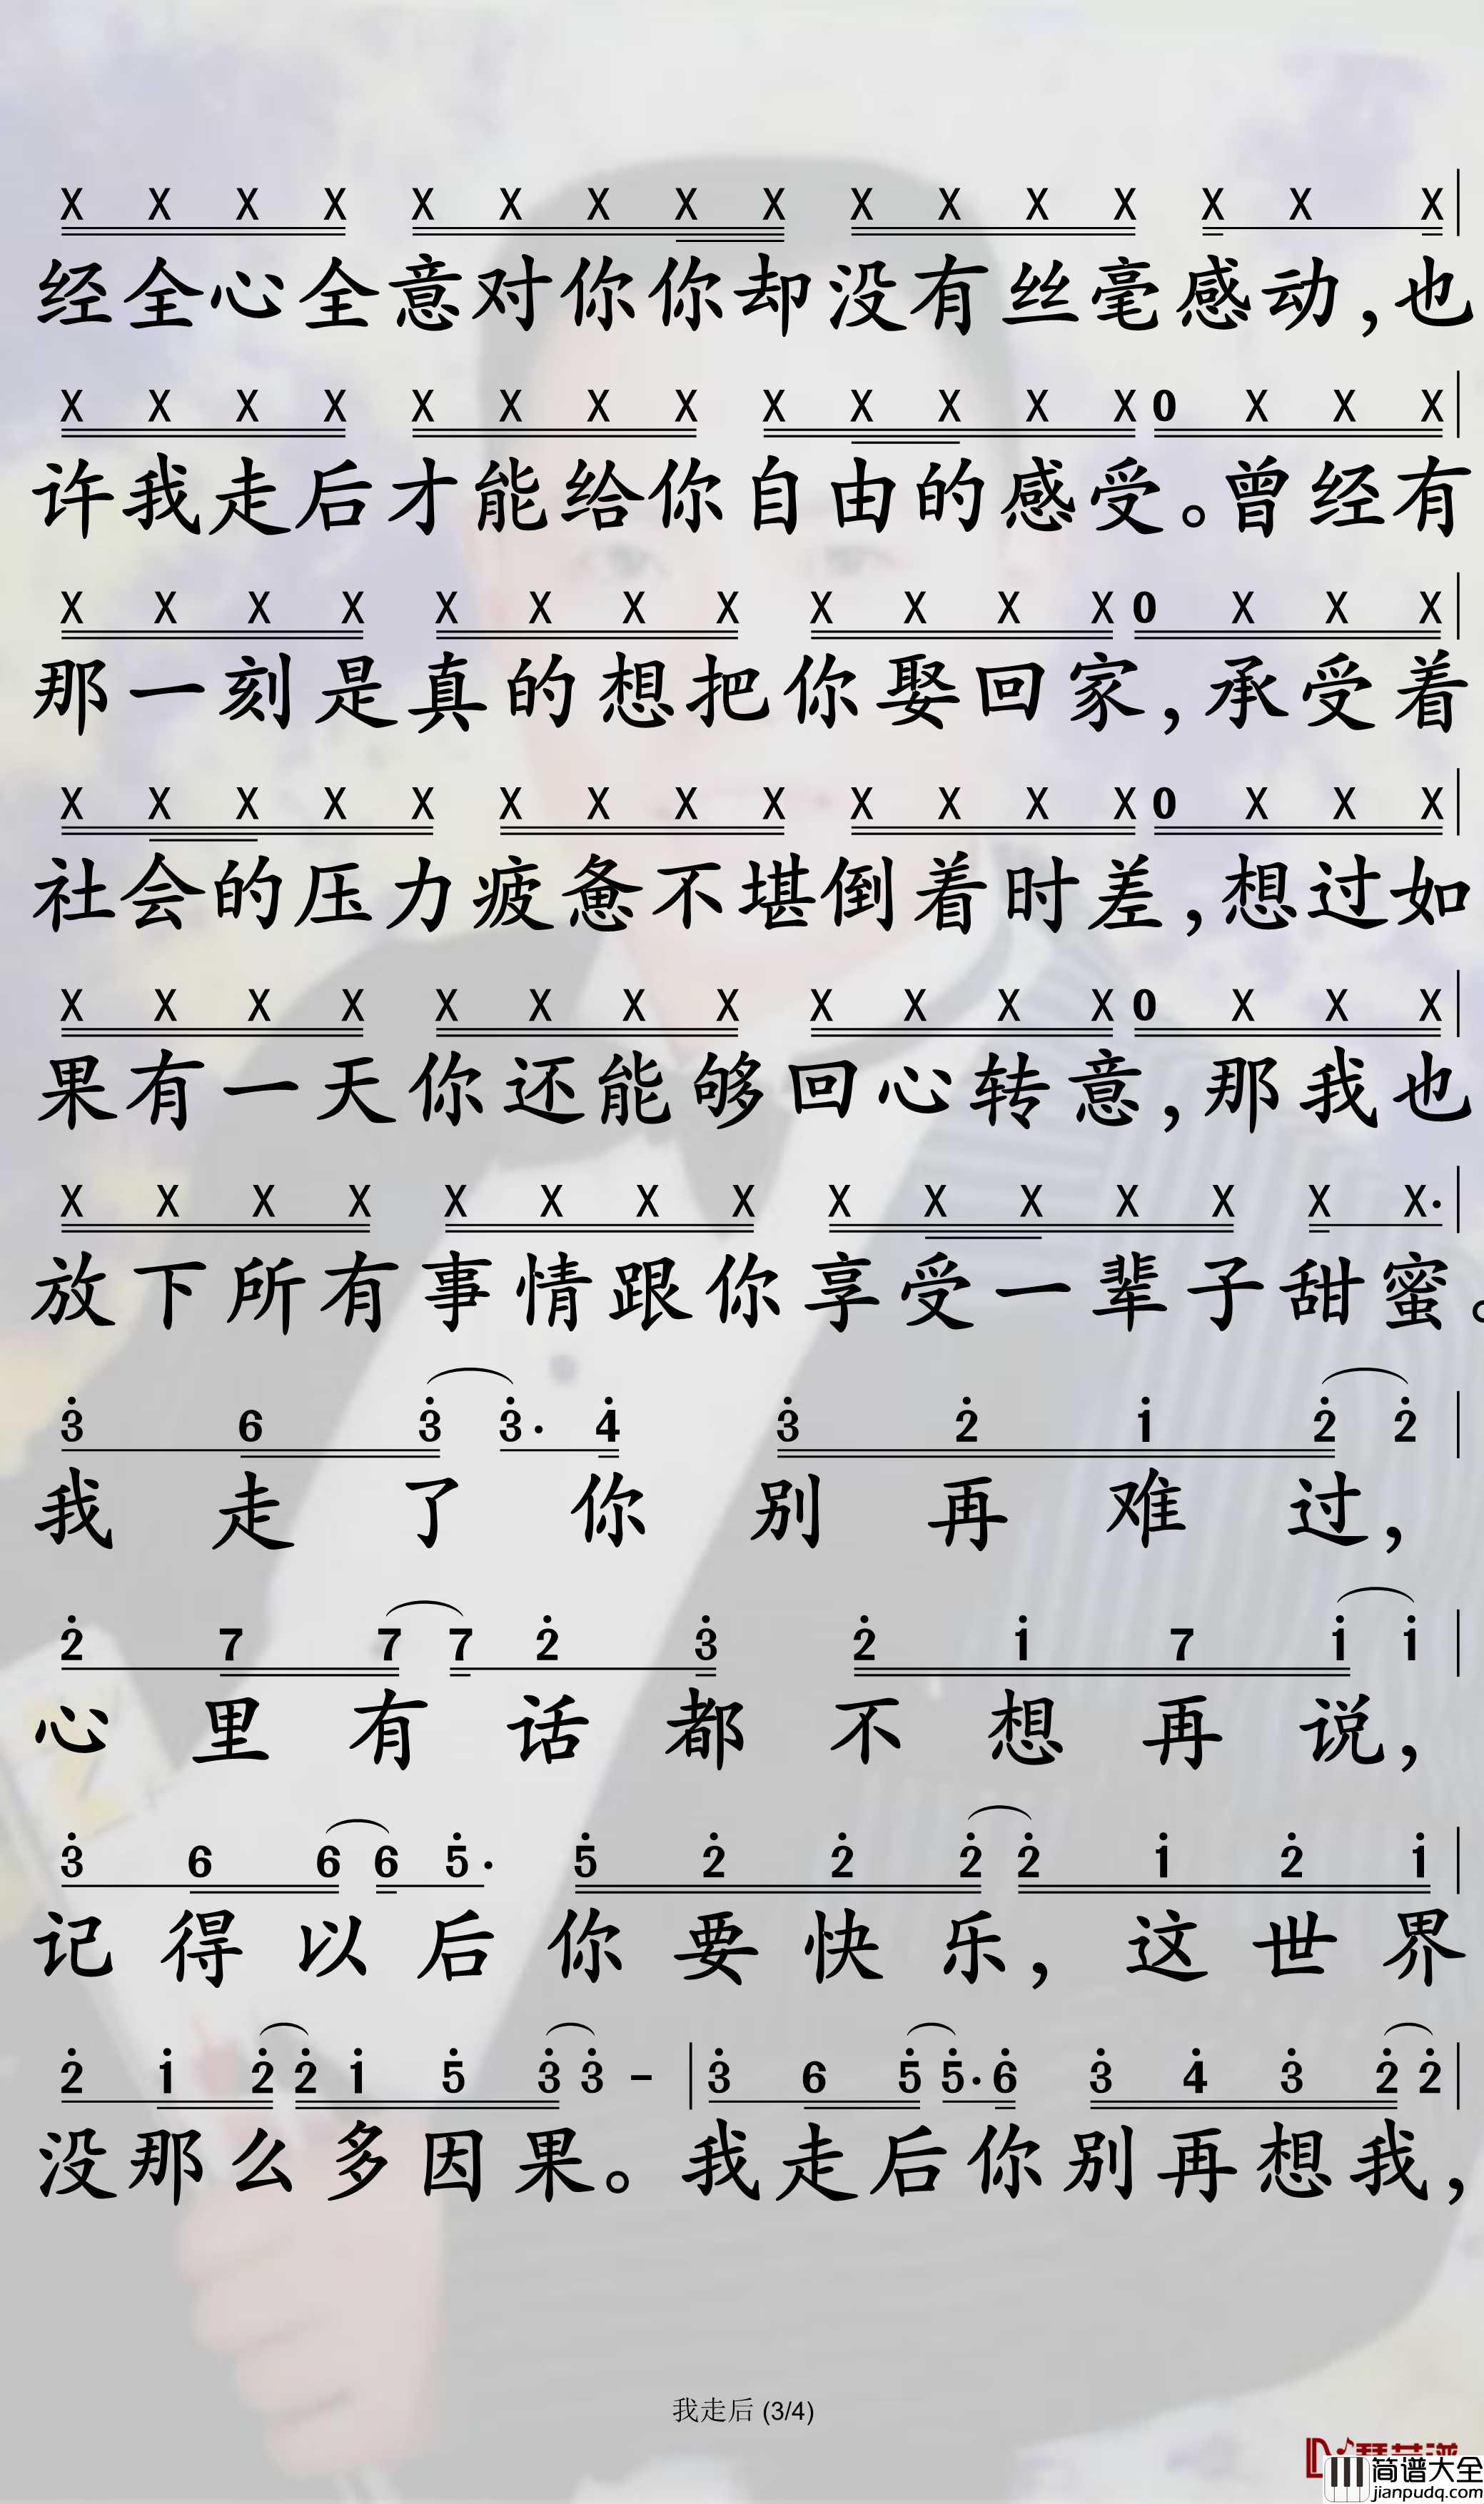 X X X X X X X X X X X X X X X X
经全心全意对你你却没有丝毫感动,也
X X X X X X X X X X X X X 0 X X X
许我走后才能给你自由的感受。曾经有
X X X X X X X X X X X X 0 X X X
那一刻是真的想把你娶回家,承受着
X X X X X X X X X X X X X 0 X X X
社会的压力疲惫不堪倒着时差,想过如
X X X X X X X X X X X X 0 X X X
果有一天你还能够回心转意,那我也
X X X X X X X X X X X X X X X·
放下所有事情跟你享受一辈子甜蜜。
3 6 3 3· 4 3 2 1 2 2
我走了你别再难过,
2 7 7 7 2 3 2 1 7 1 1
心里有话都不想再说,
3 6 6 6 5· 5 2 2 2 2 1 2 1
记得以后你要快乐,这世界
2 1 2 2 1 5 3 3 - 3 6 5 5· 6 3 4 3 2 2
没那么多因果。我走后你别再想我,
我走后 (3/4)
简谱大全
jianpudq.com